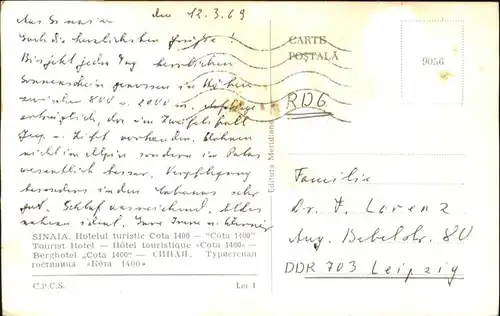 Aus Sinaia den 12.3.69
Euch die herzlichsten Grüße!
Bis jetzt jeden Tag herrlichen
Sonnenschein genossen in Höhen
zwischen 800 u. 2000 m.
erträglich, da im Zweifelsfall
u. Lift vorhanden. Wohnen
nicht im Alpin sondern im Palas
wesentlich besser. Verpflegung
besonders in den Cabanas sehr
gut. Schlaf ausreichend. Alles
nahezu ideal. Eure Irene u. Werner
SINAIA. Hotelul turistic Cota 1400 — "Cota 1400"
Tourist Hotel — Hôtel touristique «Cota 1400» —
Berghotel „Cota 1400" — СИНАЯ. Туристская
гостиница «Кота 1400»
C.P.C.S. Lei 1
Editura Meridiane
CARTE
POȘTALĂ
9056
RDG
Familie
Dr. F. Lorenz
Aug. Bebelstr. 80
DDR 703 Leipzig